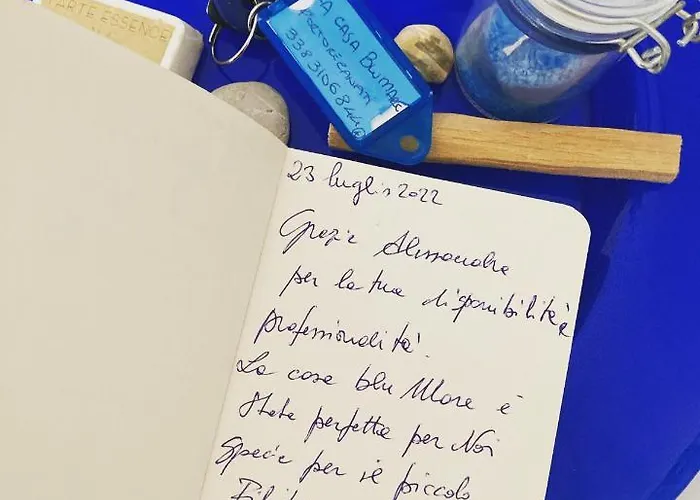 L'ARTE ESSENCE
LA CASA BLUMARE
PORTORECANATI
3383106844
23 luglio 2022
Grazie Alessandra
per la tua disponibilità e
professionalità.
La casa blu Mare è
stata perfetta per Noi
Specie per il piccolo